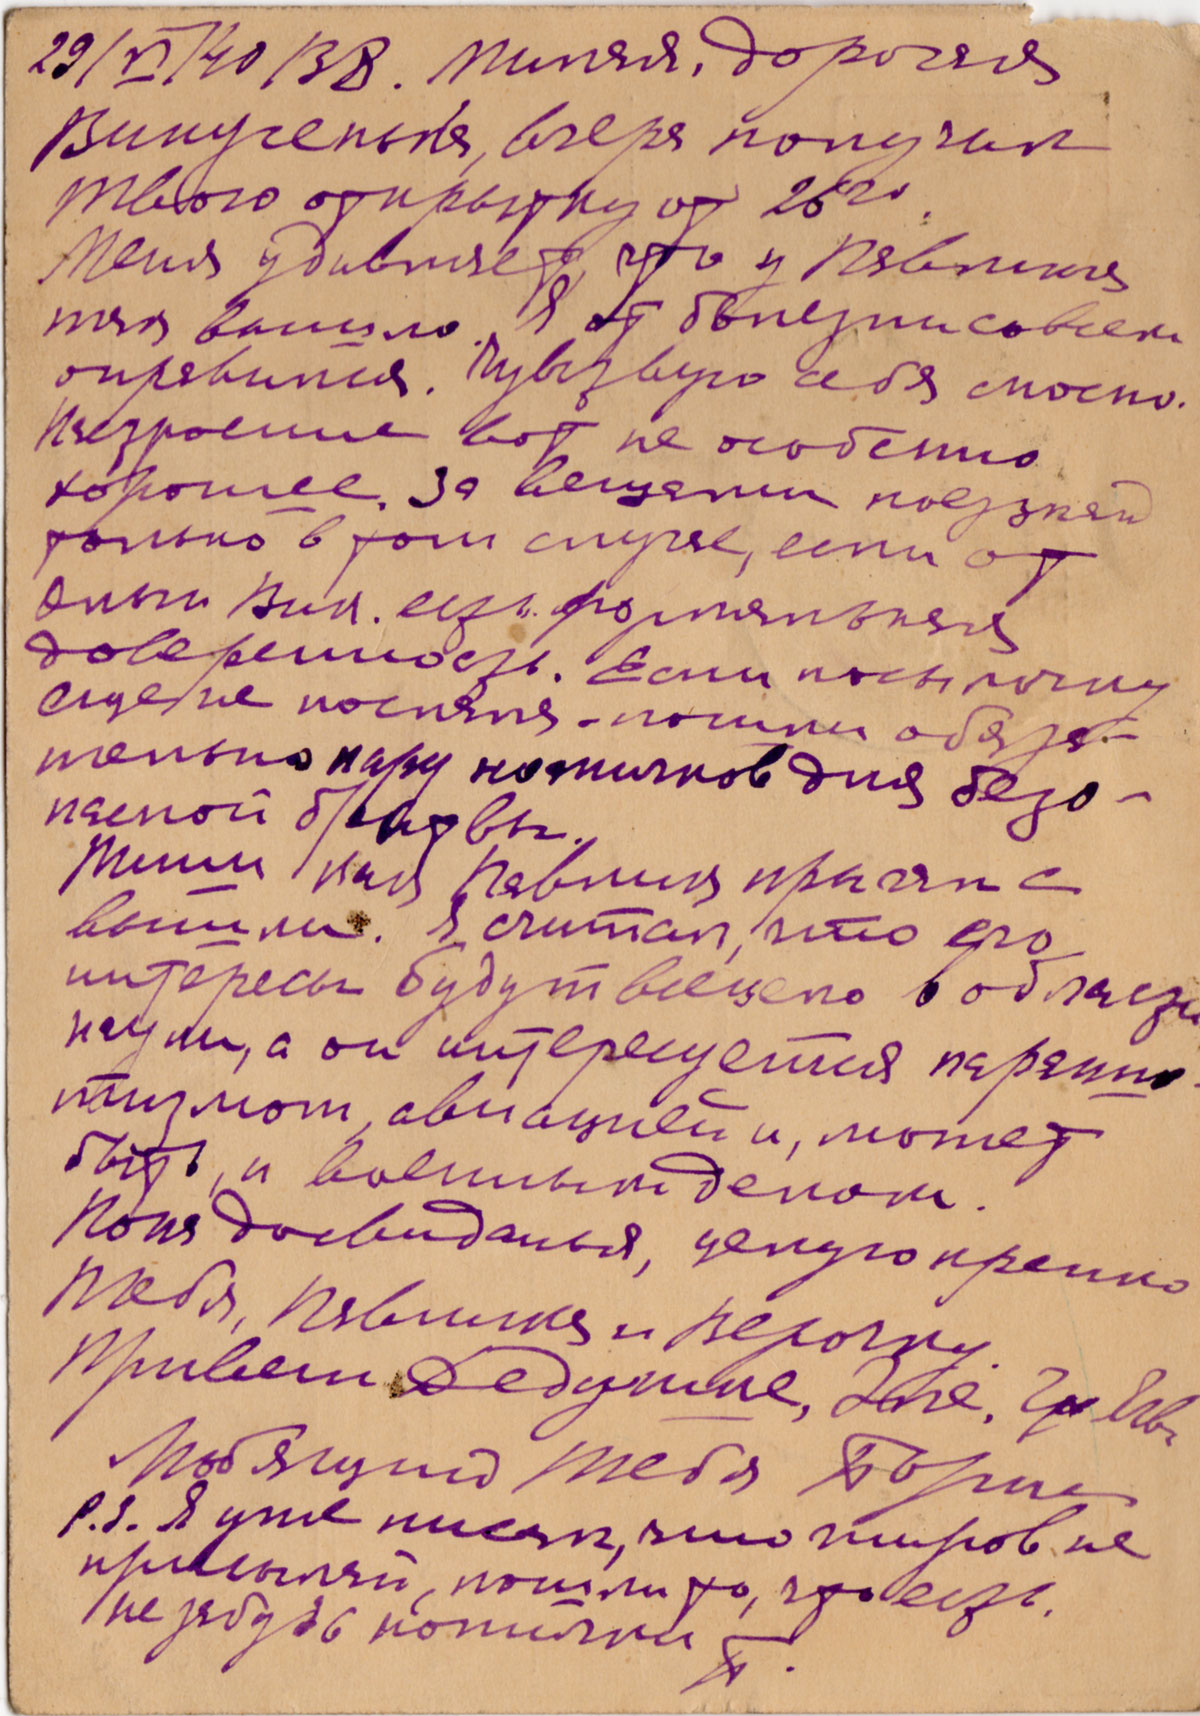 29/VI/40 / 38. Милая, дорогая
Винусенька, вчера получил
твою открытку от 26го.
Меня удивляет, что у Павлика
так вышло. Я от болезни совсем
оправился. Чувствую себя сносно.
Настроение вот не особенно
хорошее. За вещами поезжай
только в том случае, если от
есть формальная
доверенность. Если посылочку
еще не послала - пошли обяза-
тельно пару ножичков для безо-
пасной бритвы.
Павлика
вышли. Я считал, что его
интересы будут всецело в области
науки, а он интересуется
авиацией и, может
быть, и военным делом.
Пока досвиданья, целую крепко
тебя, Павлика и Верочку.
Привет Дедушке, Зое,
Любящий тебя Борис
P.S. Я уже писал, что жиров не
присылай, пошли то, что есть.
не забудь ножички
Б.